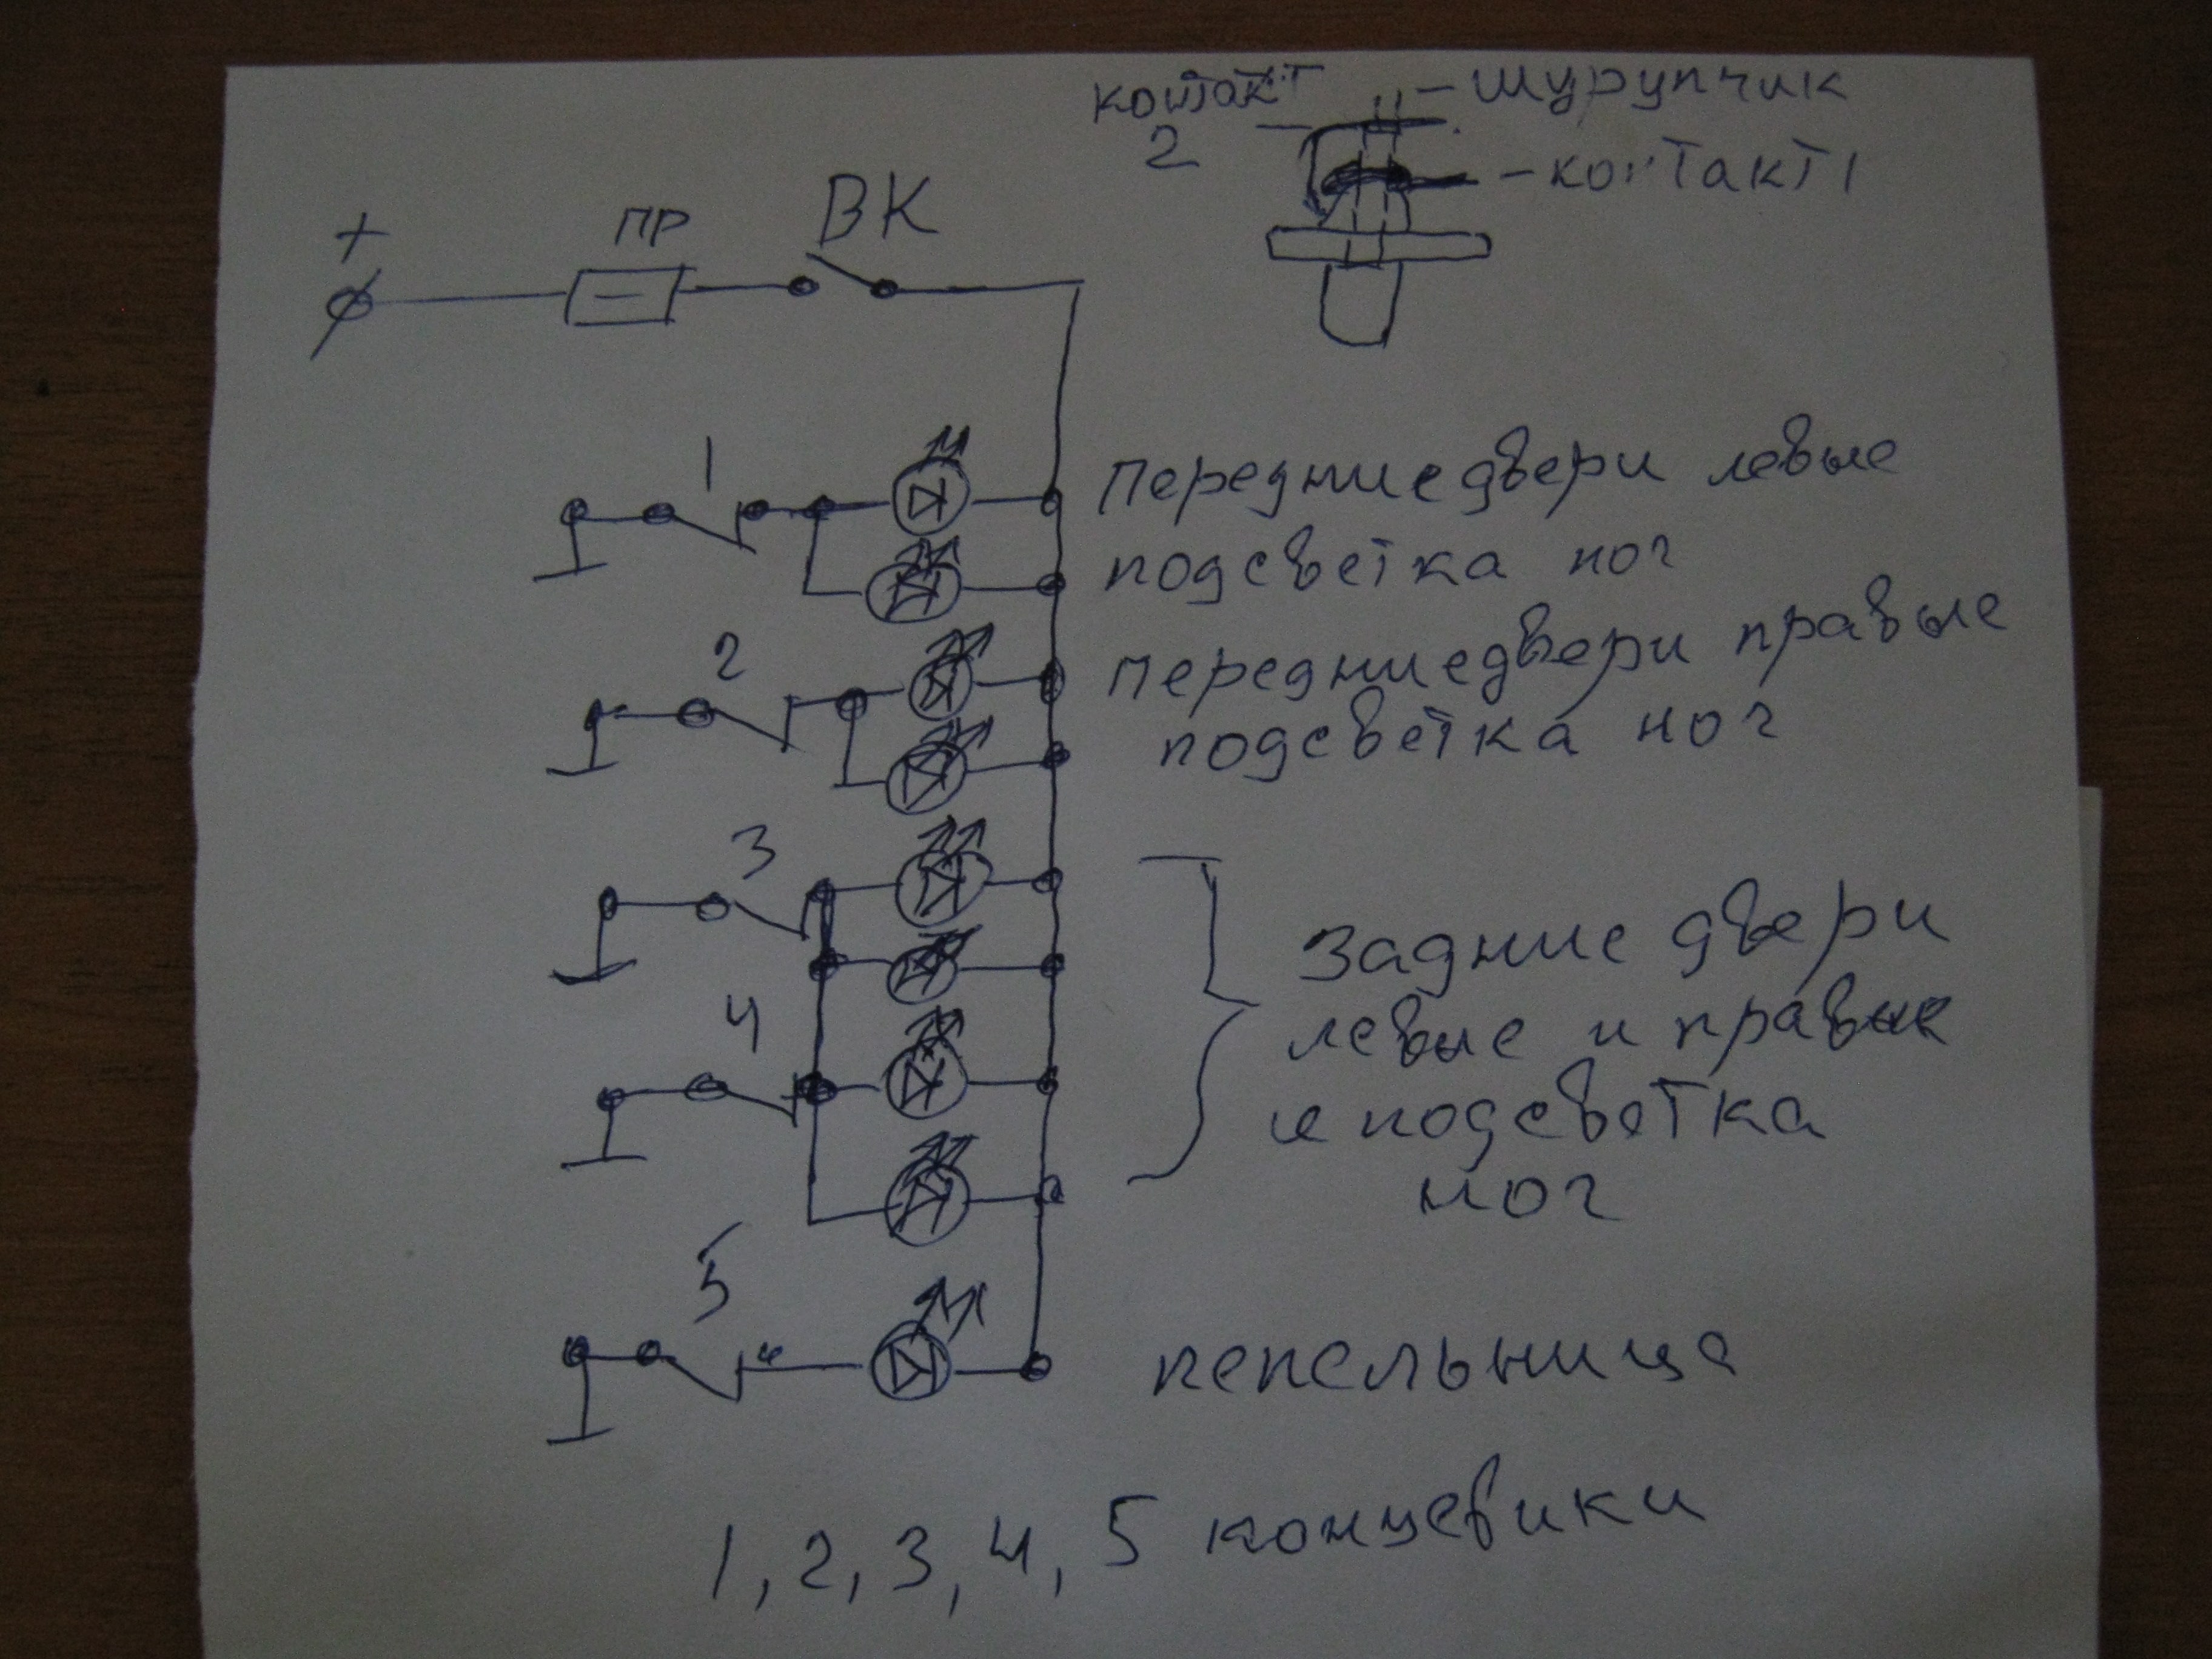 контакт
2
- шурупчик
- контакт 1
+
ПР
ВК
1
Передние двери левые
подсветка ног
2
Передние двери правые
подсветка ног
3
4
Задние двери
левые и правые
и подсветка
ног
5
пепельница
1, 2, 3, 4, 5 концевики